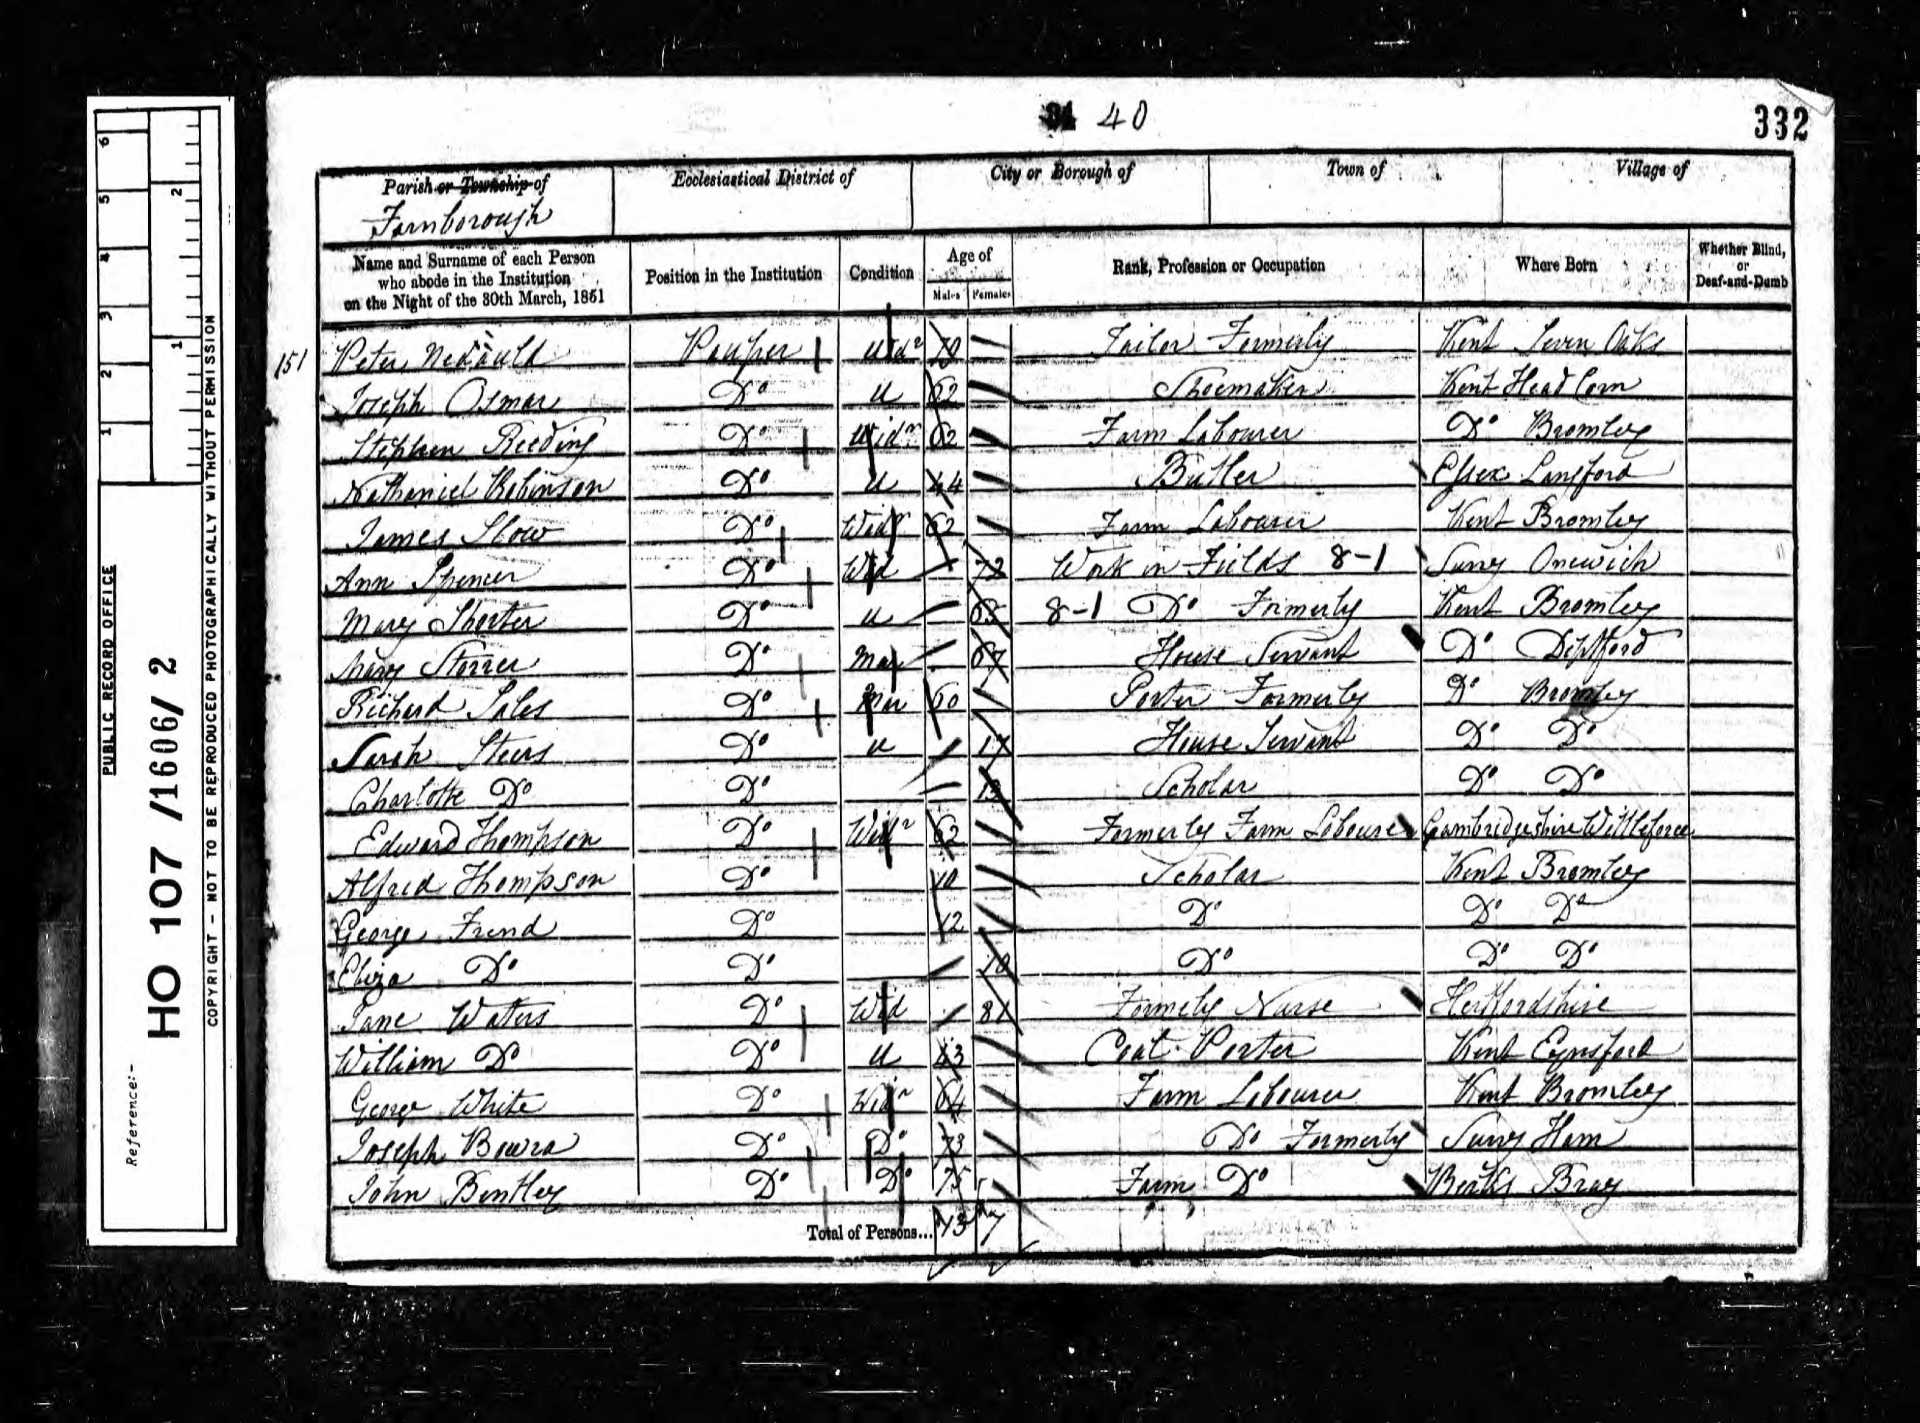 40
332
Parish or Township of
Farnborough
Ecclesiastical District of
City or Borough of
Town of
Village of
Name and Surname of each Person who abode in the Institution on the Night of the 30th March, 1851
Position in the Institution
Condition
Age of
Males
Females
Rank, Profession or Occupation
Where Born
Whether Blind, or Deaf-and-Dumb
151 Peter Pauper Widr 70 Tailor Formerly Kent Seven Oaks
Joseph Osmar Do U 62 Shoemaker Kent Head Corn
Stephen Reeding Do Widr 62 Farm Labourer Do Bromley
Nathaniel Robinson Do U 44 Butler Essex Langford
James Slow Do Widr 62 Farm Labourer Kent Bromley
Ann Spencer Do Wid 72 Work in Fields 8-1 Surry
Mary Shorter Do U 65 8-1 Do Formerly Kent Bromley
Mary Storrer Do Mar 67 House Servant Do Deptford
Richard Sales Do Mar 60 Porter Formerly Do Bromley
Sarah Steers Do U 17 House Servant Do Do
Charlotte Do Do 13 Scholar Do Do
Edward Thompson Do Widr 62 Formerly Farm Labourer Cambridgeshire
Alfred Thompson Do 10 Scholar Kent Bromley
George Frend Do 12 Do Do Do
Eliza Do Do 10 Do Do Do
Jane Waters Do Wid 81 Formely Nurse Hertfordshire
William Do Do U 43 Coal Porter Kent Eynsford
George White Do Widr 64 Farm Labourer Kent Bromley
Joseph Bowra Do Do 73 Do Formerly Surry Ham
John Bentley Do Do 75 Farm Do Berks Bray
Total of Persons... 13 7
6
5
4
3
2
1
2
1
PUBLIC RECORD OFFICE
Reference:-
HO 107 /1606/ 2
COPYRIGHT - NOT TO BE REPRODUCED PHOTOGRAPHICALLY WITHOUT PERMISSION